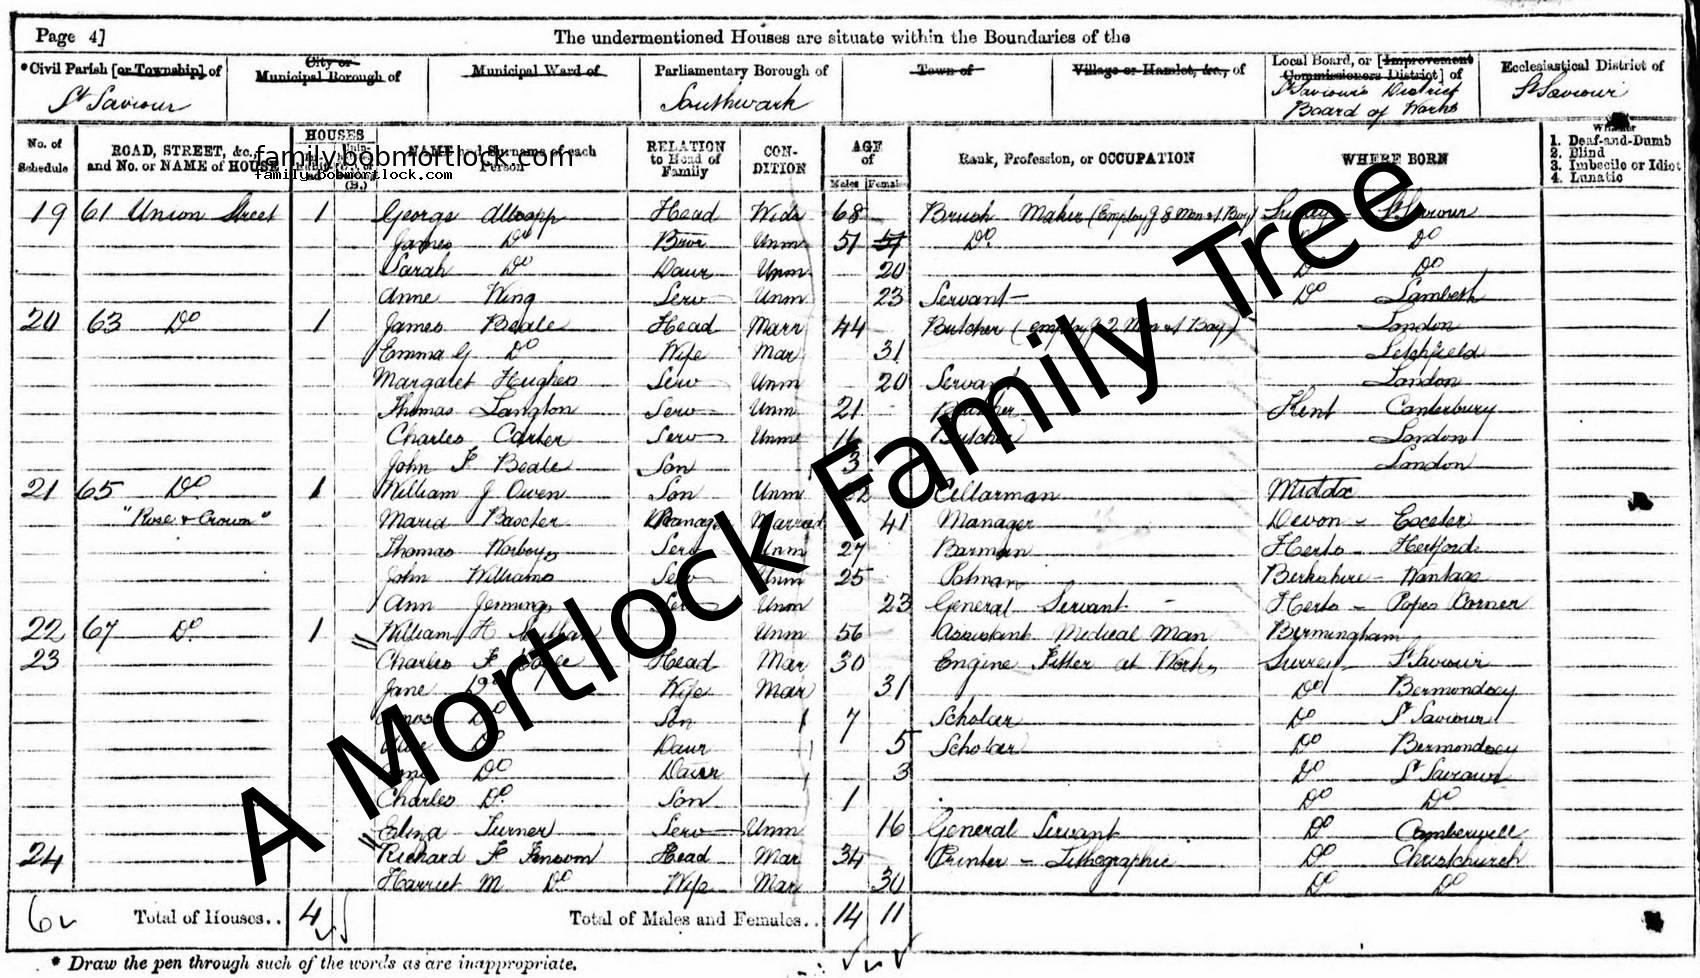 Page 4]
The undermentioned Houses are situate within the Boundaries of the
*Civil Parish [or Township] of
City or Municipal Borough of
Municipal Ward of
Parliamentary Borough of
Town of
Village or Hamlet, &c., of
Local Board, or [Improvement Commissioners District] of
Ecclesiastical District of
St Saviour
Southwark
St Saviour's District Board of Works
St Saviour
No. of Schedule
ROAD, STREET, &c., and No. or NAME of HOUSE
HOUSES
(B.)
NAME and Surname of each Person
RELATION to Head of Family
CONDITION
AGE of
Males
Females
Rank, Profession, or OCCUPATION
WHERE BORN
Whether
1. Deaf-and-Dumb
2. Blind
3. Imbecile or Idiot
4. Lunatic
family.bobmortlock.com
family.bobmortlock.com
19 61 Union Street 1 George Allsopp Head Wids 68 Brush Maker (Employg 8 Men & 1 Boy) Surrey St Saviour
James Do Bror Unm 51 51 Do Do Do
Sarah Do Daur Unm 20 Do Do
Anne Wing Serv Unm 23 Servant Do Lambeth
20 63 Do 1 James Beale Head Marr 44 Butcher (employg 2 Men & 1 Boy) London
Emma G Do Wife Mar 31
Margaret Hughes Serv Unm 20 Servant London
Thomas Langton Serv Unm 21 Butcher Kent Canterbury
Charles Carter Serv Unm 16 Butcher London
John F Beale Son 3 London
21 65 Do 1 William J Owen Son Unm 22 Cellarman Middx
"Rose & Crown" Maria Manager Married 41 Manager Devon Exeter
Thomas Worboys Serv Unm 27 Barman Herts Hertford
John Williams Serv Unm 25 Potman Berkshire Wantage
Ann Jennings Serv Unm 23 General Servant Herts Popes Corner
22 67 Do 1 William H Unm 56 Assistant Medical Man Birmingham
23 Charles F Head Mar 30 Engine Fitter at Works Surrey St Saviour
Jane Do Wife Mar 31 Do Bermondsey
Do Son 7 Scholar Do St Saviour
Do Daur 5 Scholar Do Bermondsey
Do Daur 3 Do St Saviour
Charles Do Son 1 Do Do
Turner Serv Unm 16 General Servant Do Camberwell
24 Richard F Head Mar 34 Printer - Lithographic Do Christchurch
Harriet M Do Wife Mar 30 Do Do
6 Total of Houses.. 4 Total of Males and Females.. 14 11
* Draw the pen through such of the words as are inappropriate.
A Mortlock Family Tree